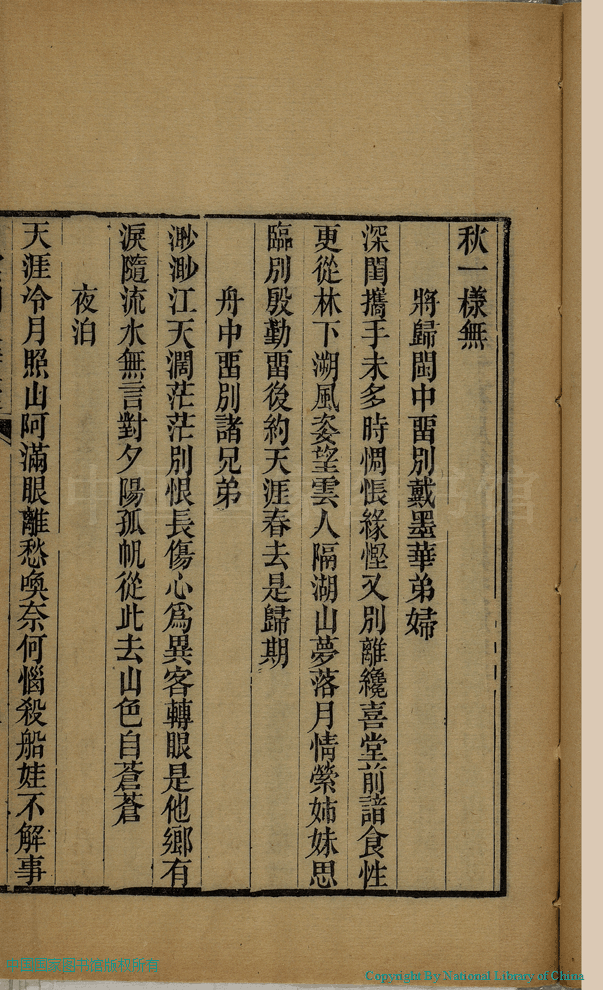 秋一樣無
將歸閩中畱別戴墨華弟婦
深閨攜手未多時惆悵緣慳又別離纔喜堂前諳食性
更從林下溯風姿望雲人隔湖山夢落月情縈姊妹思
臨別殷勤畱後約天涯春去是歸期
舟中畱別諸兄弟
渺渺江天濶茫茫別恨長傷心爲異客轉眼是他鄉有
淚隨流水無言對夕陽孤帆從此去山色自蒼蒼
夜泊
天涯冷月照山阿滿眼離愁喚奈何惱殺船娃不解事
中国国家图书馆版权所有
Copyright By National Library of China